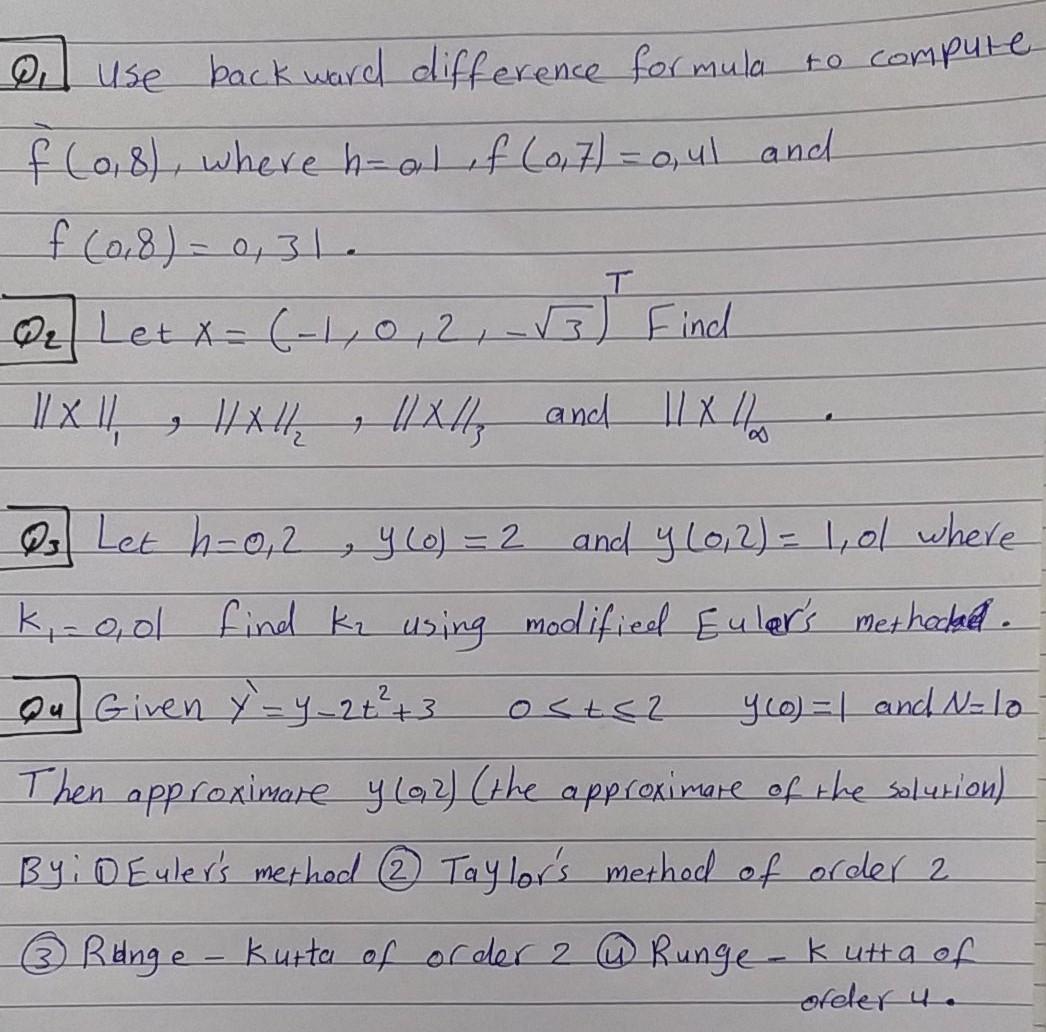 Q1 Use backward difference formula to compute
f̀(0,8), where h=0,1, f(0,7)=0,41 and
f(0,8)=0,31.
Q2 Let x=(-1,0,2,-√3)ᵀ Find
||X||₁, ||X||₂, ||X||₃ and ||X||∞.
Q3 Let h=0,2, y(0)=2 and y(0,2)=1,01 where
K₁=0,01 find k₂ using modified Euler's method.
Q4 Given y`=y-2t²+3 0≤t≤2 y(0)=1 and N=10
Then approximate y(0,2) (the approximate of the solution)
By: ① Euler's method ② Taylor's method of order 2
③ Runge-Kutta of order 2 ④ Runge-Kutta of
order 4.